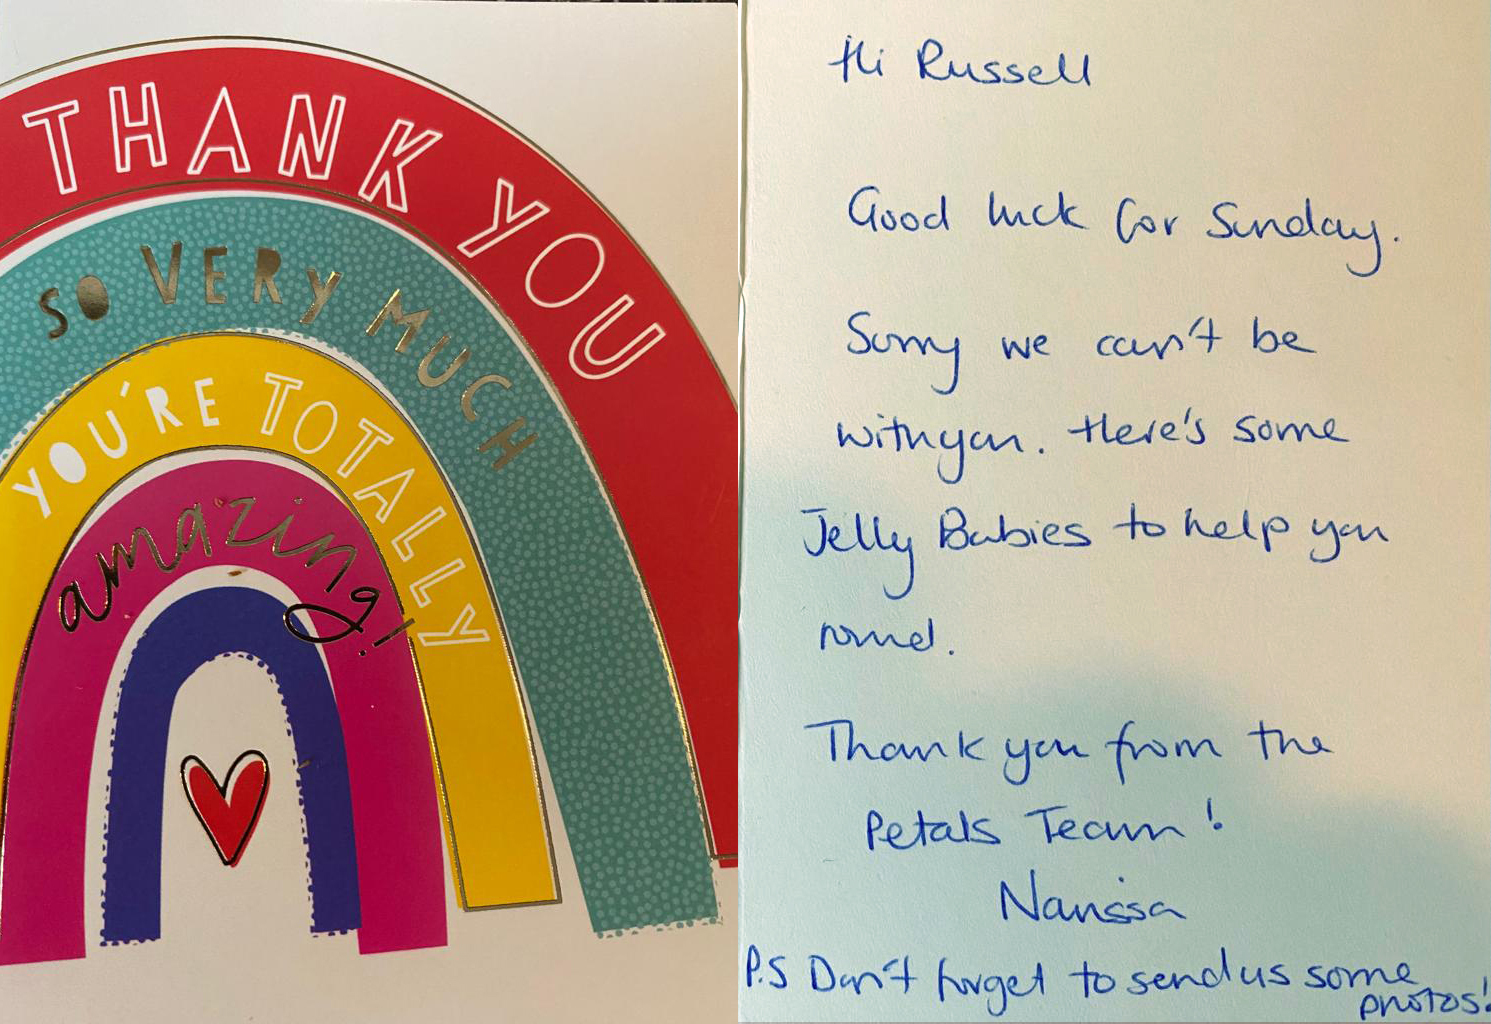 THANK YOU
SO VERY MUCH
YOU'RE TOTALLY
amazing!
Hi Russell
Good luck for Sunday.
Sorry we can't be
with you. Here's some
Jelly Babies to help you
round.
Thank you from the
Petals Team!
P.S Don't forget to send us some
photos!